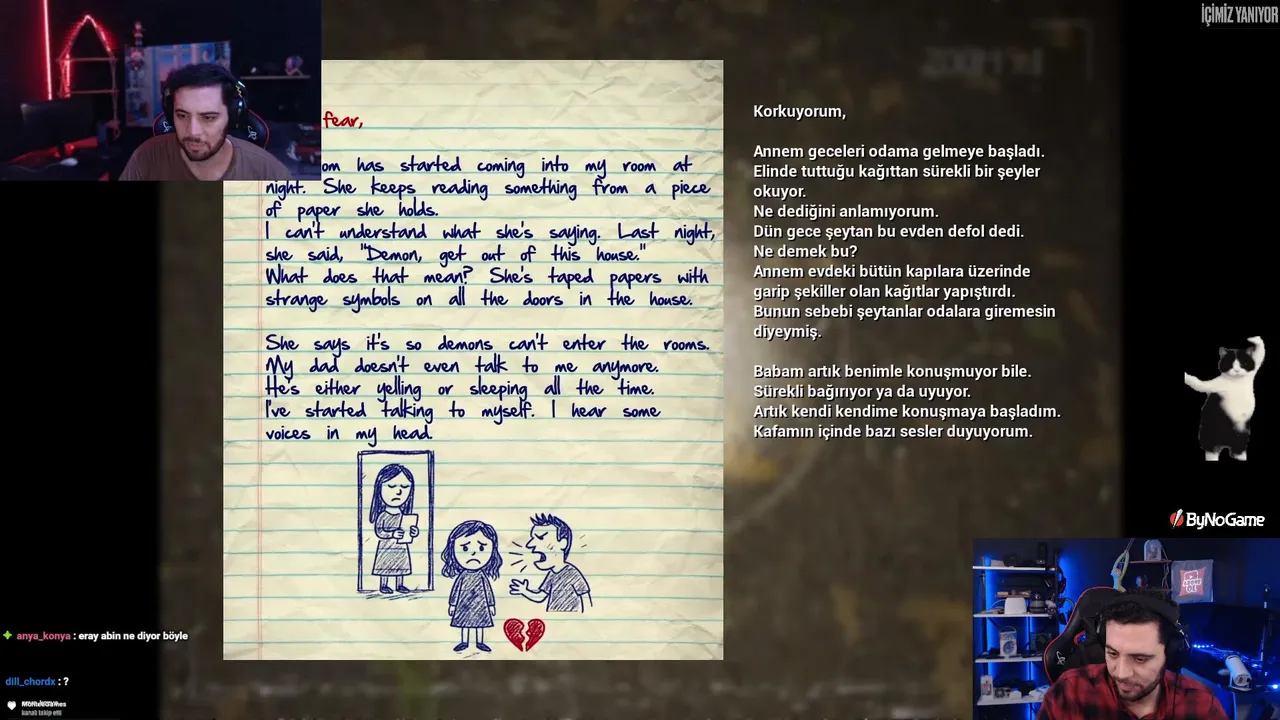 İÇİMİZ YANIYOR
fear,
om has started coming into my room at
night. She keeps reading something from a piece
of paper she holds.
I can't understand what she's saying. Last night,
she said, "Demon, get out of this house."
What does that mean? She's taped papers with
strange symbols on all the doors in the house.
She says it's so demons can't enter the rooms.
My dad doesn't even talk to me anymore.
He's either yelling or sleeping all the time.
I've started talking to myself. I hear some
voices in my head.
Korkuyorum,
Annem geceleri odama gelmeye başladı.
Elinde tuttuğu kağıttan sürekli bir şeyler
okuyor.
Ne dediğini anlamıyorum.
Dün gece şeytan bu evden defol dedi.
Ne demek bu?
Annem evdeki bütün kapılara üzerinde
garip şekiller olan kağıtlar yapıştırdı.
Bunun sebebi şeytanlar odalara giremesin
diyeymiş.
Babam artık benimle konuşmuyor bile.
Sürekli bağırıyor ya da uyuyor.
Artık kendi kendime konuşmaya başladım.
Kafamın içinde bazı sesler duyuyorum.
ByNoGame
anya_konya : eray abin ne diyor böyle
dill_chordx : ?
kanalı takip etti